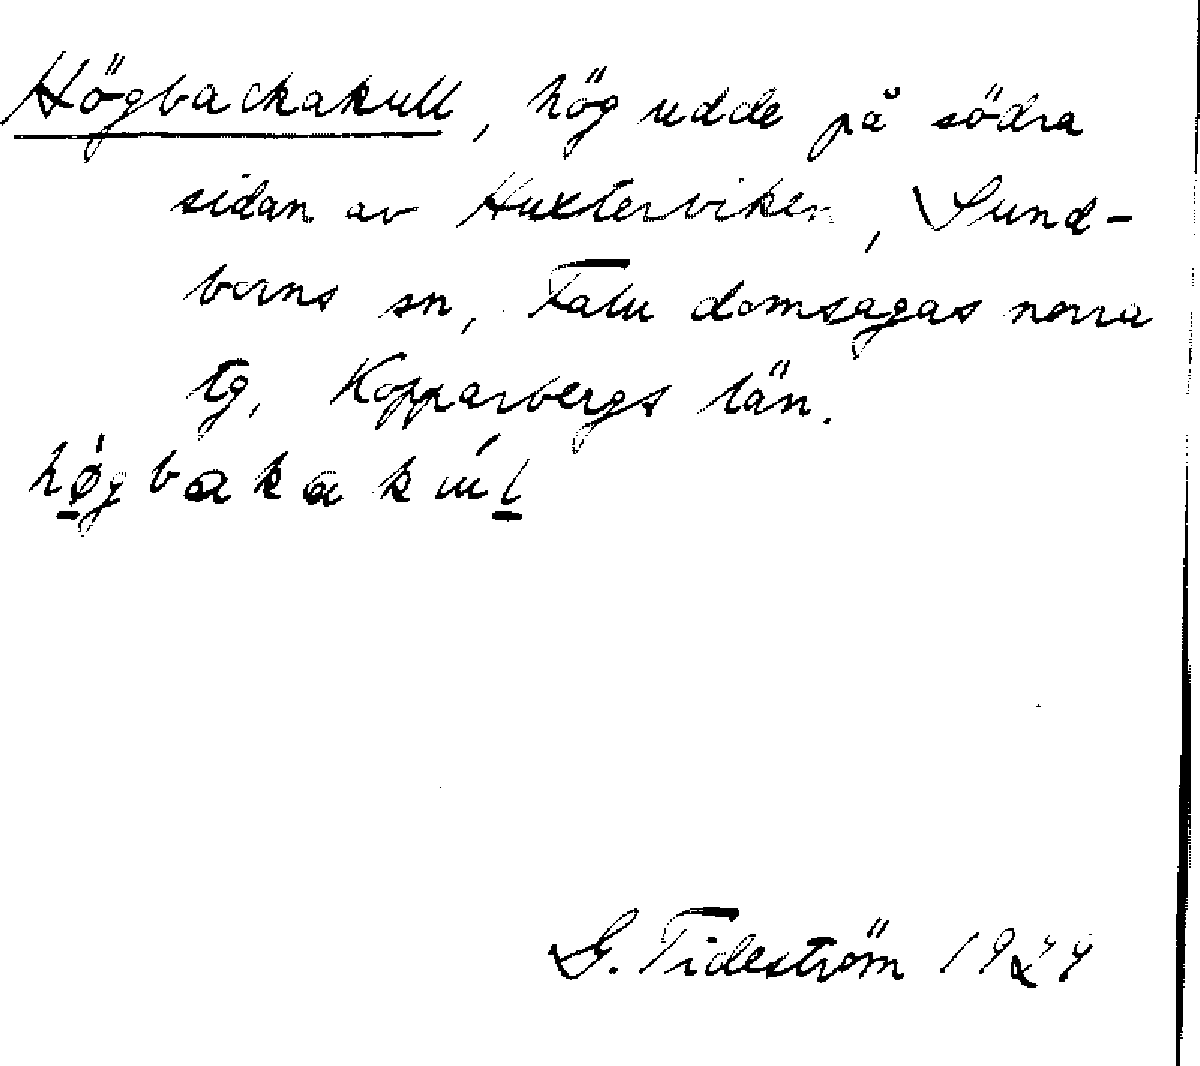 Högbackakull, hög udde på södra
sidan av Huxterviken, Sund-
borns sn, Falu domsagas norra
tg, Kopparbergs län.
hø̀gbakakúl
G. Tideström 1924